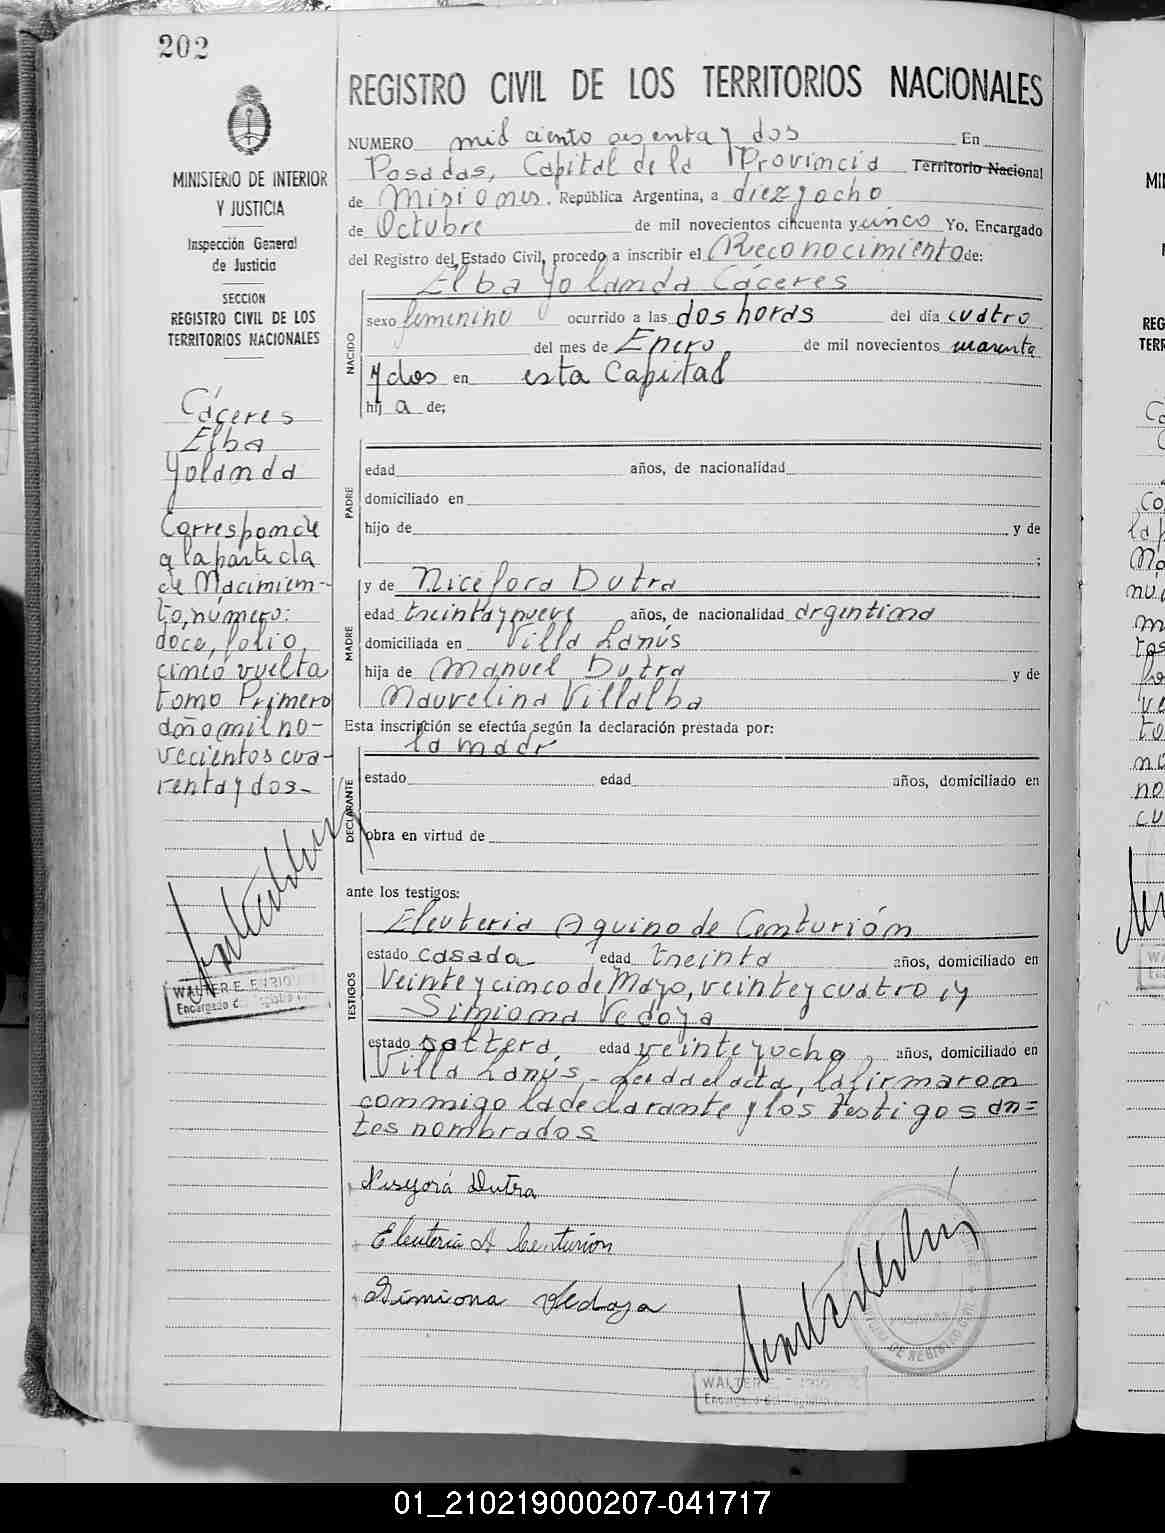 202
MINISTERIO DE INTERIOR
Y JUSTICIA
Inspección General
de Justicia
SECCION
REGISTRO CIVIL DE LOS
TERRITORIOS NACIONALES
Cáceres
Elba
Yolanda
Corresponde
a la partida
de Nacimien-
to, número:
doce, folio
cinco vuelta
tomo Primero
año mil no-
vecientos cua-
renta y dos-
WALTER E.
Encargado
REGISTRO CIVIL DE LOS TERRITORIOS NACIONALES
NUMERO mil ciento sesenta y dos En
Posadas, Capital de la Provincia Territorio Nacional
de Misiones. República Argentina, a diez y ocho
de Octubre de mil novecientos cincuenta y cinco Yo, Encargado
del Registro del Estado Civil, procedo a inscribir el Reconocimiento de:
Elba Yolanda Cáceres
NACIDO
sexo femenino ocurrido a las dos horas del día cuatro
del mes de Enero de mil novecientos cuarenta
y dos en esta Capital
hij a de;
PADRE
edad años, de nacionalidad
domiciliado en
hijo de y de
;
MADRE
y de Nicefora Dutra
edad treinta y nueve años, de nacionalidad argentina
domiciliada en Villa Lanús
hija de Manuel Dutra y de
Maurelina Villalba
Esta inscripción se efectúa según la declaración prestada por:
la madr
DECLARANTE
estado edad años, domiciliado en
obra en virtud de
ante los testigos:
TESTIGOS
Eleuteria Aquino de Centurión
estado casada edad treinta años, domiciliado en
Veinte y cinco de Mayo, veinte y cuatro, y
Simiona Vedoya
estado soltera edad veinte y ocho, años, domiciliado en
Villa Lanús,- Leida el acta, la firmaron
conmigo la declarante y los testigos an=
tes nombrados
Dutra
Eleuteria A Centurion
Simiona Vedoya
WALTER E.
01_210219000207-041717